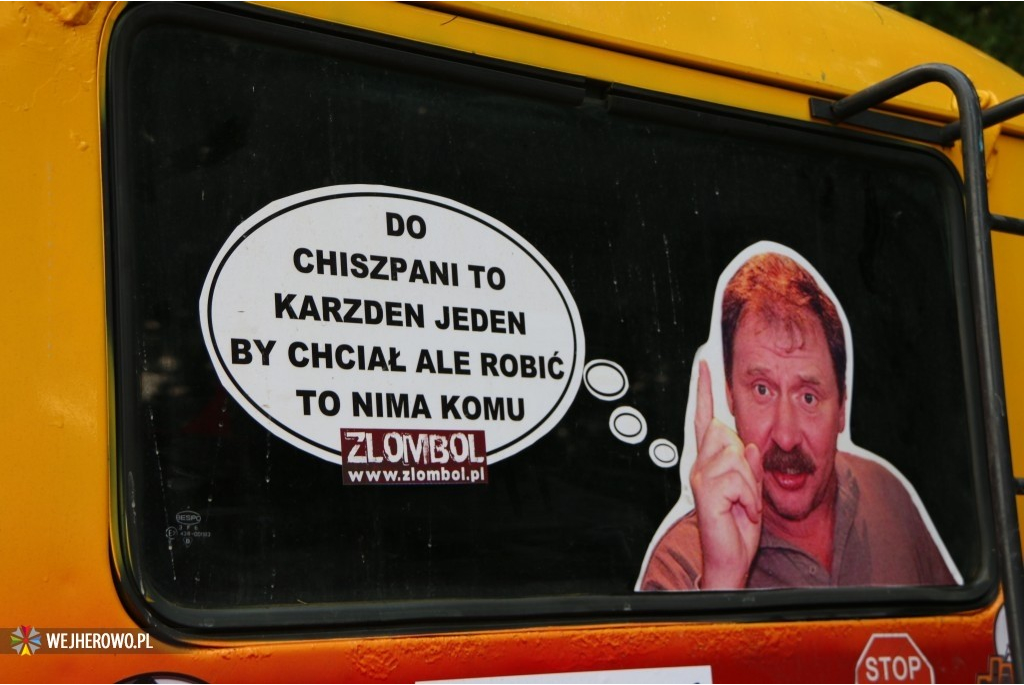 DO
CHISZPANI TO
KARZDEN JEDEN
BY CHCIAŁ ALE ROBIĆ
TO NIMA KOMU
ZLOMBOL
www.zlombol.pl
WEJHEROWO.PL
STOP